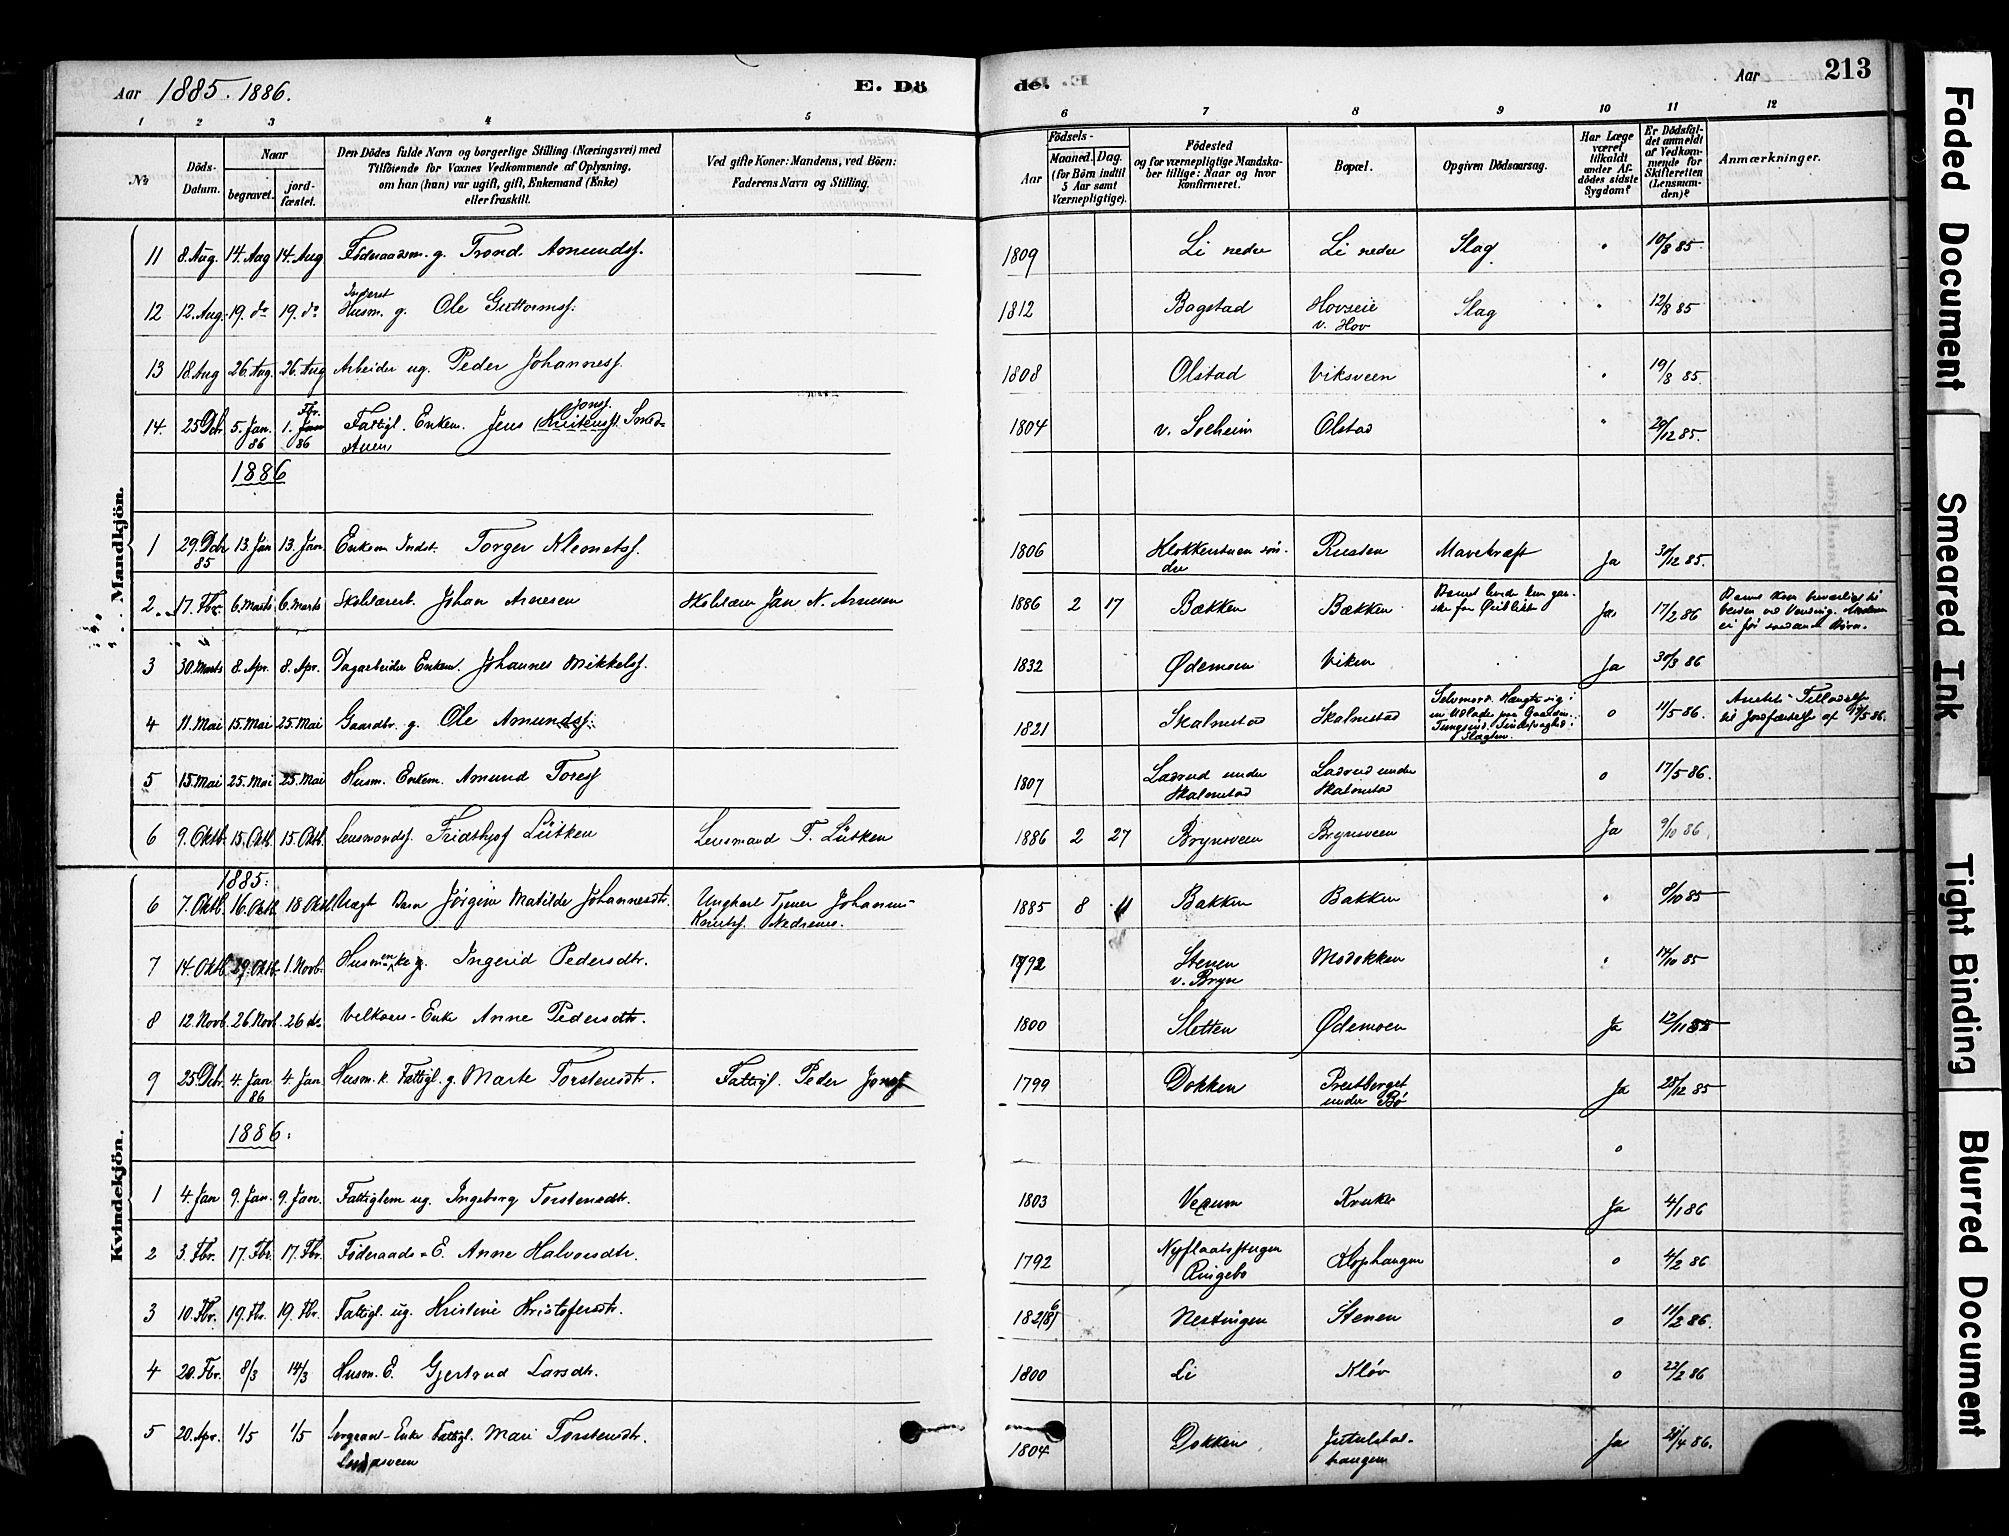 Aar 1885. 1886.
E. Dö
de.
Aar
213
1 2 3 4 5 6 7 8 9 10 11 12
No
Döds-Datum.
Naar
begravet.
jord-fæstet.
Den Dödes fulde Navn og borgerlige Stilling (Næringsvei) med
Tilföiende for Voxnes Vedkommende af Oplysning,
om han (hun) var ugift, gift, Enkemand (Enke)
eller fraskilt.
Ved gifte Koner: Mandens, ved Börn:
Faderens Navn og Stilling.
Födsels-
Aar
Maaned. Dag.
(for Börn indtil
5 Aar samt
Værnepligtige).
Födested
og for værnepligtige Mandska-
ber tillige: Naar og hvor
konfirmeret.
Bopæl.
Opgiven Dödsaarsag.
Har Læge
været
tilkaldt
under Af-
dödes sidste
Sygdom?
Er Dödsfal-
det anmeldt
af Vedkom-
mende for
Skifteretten
(Lensman-
den)?
Anmærkninger.
Mandkjön.
11 8. Aug. 14. Aug 14. Aug Föderaadsm. g. Trond Amundsf. 1809 Li nedre Li nedre Slag " 10/8 85
12 12. Aug. 19. do 19. do Inderst Husm. g. Ole Guttormsf. 1812 Bagstad Hovseie v. Hov Slag " 12/8 85
13 18 Aug 26. Aug. 26. Aug Arbeider ug. Peder Johannesf. 1808 Olstad Viksveen " 19/8 85.
14. 25 Dcbr 5. Jan. 86 1. Fbr. 86 Fattigl. Enkem. Jens Jonsf. 1804 v. Solheim Olstad " 28/12 85.
1886
1 29. Dcbr 85 13. Jan 13. Jan. Enkem Indst. Torger Klemetsf. 1806 Klokkerstuen søndre Rusten Mavekræft Ja 30/12 85.
2. 17. Fbr. 6. Marts 6. Marts Skolelærerb. Johan Arnesen Skolelærer Jan N. Arnesen 1886 2 17 Bækken Bækken Ja 17/2 86
3 30. Marts 8. Apr. 8. Apr. Dagarbeider Enkem. Johannes Mikkelsf. 1832 Ødemoen Viken Ja 30/3 86
4 11. Mai 15. Mai 25. Mai Gaardbr. g. Ole Amundsf. 1821 Skalmstad Skalmstad Selvmord. Hængte sig i en Udlade paa Gaarden. Tungsind. Sindssvaghed i Slægten. o 11/5 86. Amtets Tilladelse til Jordfæstelse af 17/5 86.
5 15. Mai 25. Mai 25. Mai Husm. Enkem. Amund Toresf 1807 Ladrud under Skalmstad Ladrud under Skalmstad o 17/5 86.
6 9. Oktb. 15. Oktb. 15. Oktb. Lensmandsf. Fridthjof Lütken Lensmand F. Lütken 1886 2 27 Brynsveen Brynsveen Ja 9/10 86.
Kvindekjön.
1885:
6 7. Oktb. 16. Oktb. 18 Oktb Uægt Barn Jørgine Matilde Johannesdtr. Ungkarl Tjener Johannes Knutsf. 1885 8 11 Bakken Bakken " 8/10 85
7 14. Oktb 29. Oktb. 1. Novb. Husmenke Ingerid Pedersdtr. 1792 Stenen v. Bryn Modokken " 14/10 85
8 12. Novb. 26 Novb. 26 do Enke Anne Pedersdtr. 1800 Sletten Ødemoen Ja 12/11 85
9 25. Dcbr. 4. Jan 86 4. Jan. Husm. k. Fattigl. g. Marte Torstensdtr. Fattigl. Peder Jonsf 1799 Dokken Prestberget under Bø Ja 28/12 85
1886: o
1 4. Jan 9. Jan. 9. Jan. Fattiglem ug. Ingeborg Torstensdtr. 1803 Vexum Kruke Ja 4/1 86
2 3. Fbr. 17. Fbr. 17. Fbr. Föderaads-E. Anne Halvorsdtr. 1792 Ringebo Klophaugen o 4/2 86.
3 10. Fbr. 19. Fbr. 19. Fbr. Fattigl. ug. Kristine Kristofersdtr. 1821 Nestingen Stenen o 11/2 86.
4 20. Fbr. 8/3 14/3 Husm. E. Gjertrud Larsdtr. 1800 Li Kløv o 22/2 86
5 20. Apr. 1/5 1/5 Sergeant-Enke Fattigl. Mari Torstensdtr. 1804 Dokken Jutulstalhaugen Ja 20/4 86.
Faded Document
Smeared Ink
Tight Binding
Blurred Document